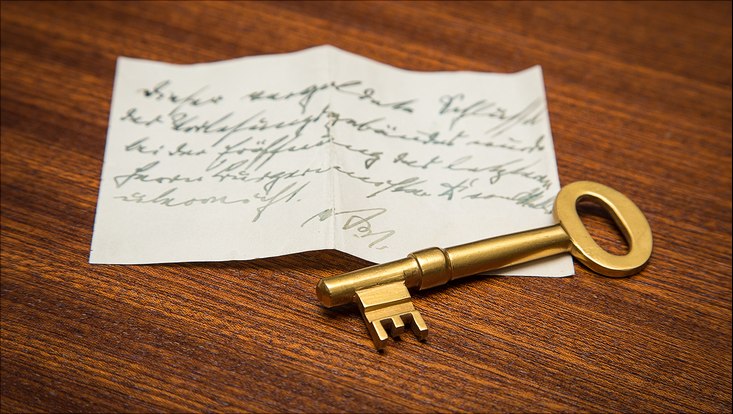 Dieser vergoldete Schlüssel
des Vorlesungsgebäudes wurde
bei der Eröffnung des letzteren
Herrn Bürgermeister
überreicht.